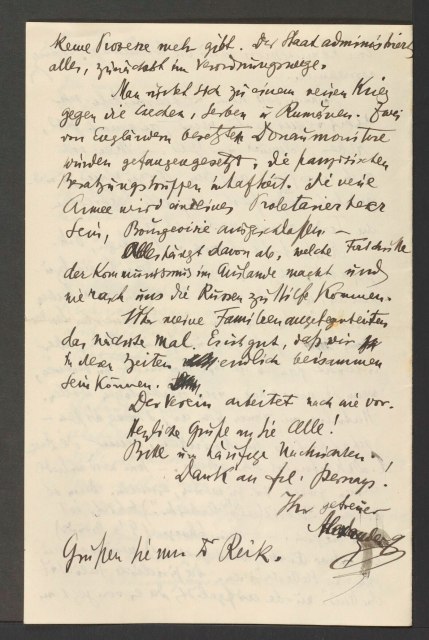 keine Prozesse mehr gibt. Der Staat administriert
alles, zunächst im Verordnungswege.
Man rüstet sich zu einem neuen Krieg
gegen die Čechen, Serben u Rumänen. Zwei
von Engländern besetzte Donaumonitore
wurden gefangengesetzt, die französischen
Besatzungstruppen inhaftiert. Die neue
Armee wird ein reines Proletarierheer
sein, Bourgeoisie ausgeschlossen. —
Alles hängt davon ab, welche Fortschritte
der Kommunismus im Auslande macht und
wie rasch uns die Russen zu Hilfe kommen.
Über meine Familienangelegenheiten
das nächste Mal. Es ist gut, daß wir
in diesen Zeiten endlich beisammen
sein können.
Der Verein arbeitet nach wie vor.
Herzliche Grüße an Sie Alle!
Bitte um häufige Nachrichten.
Dank an Frl. Bernays!
Ihr getreuer
Grüßen Sie mir Dr Reik.